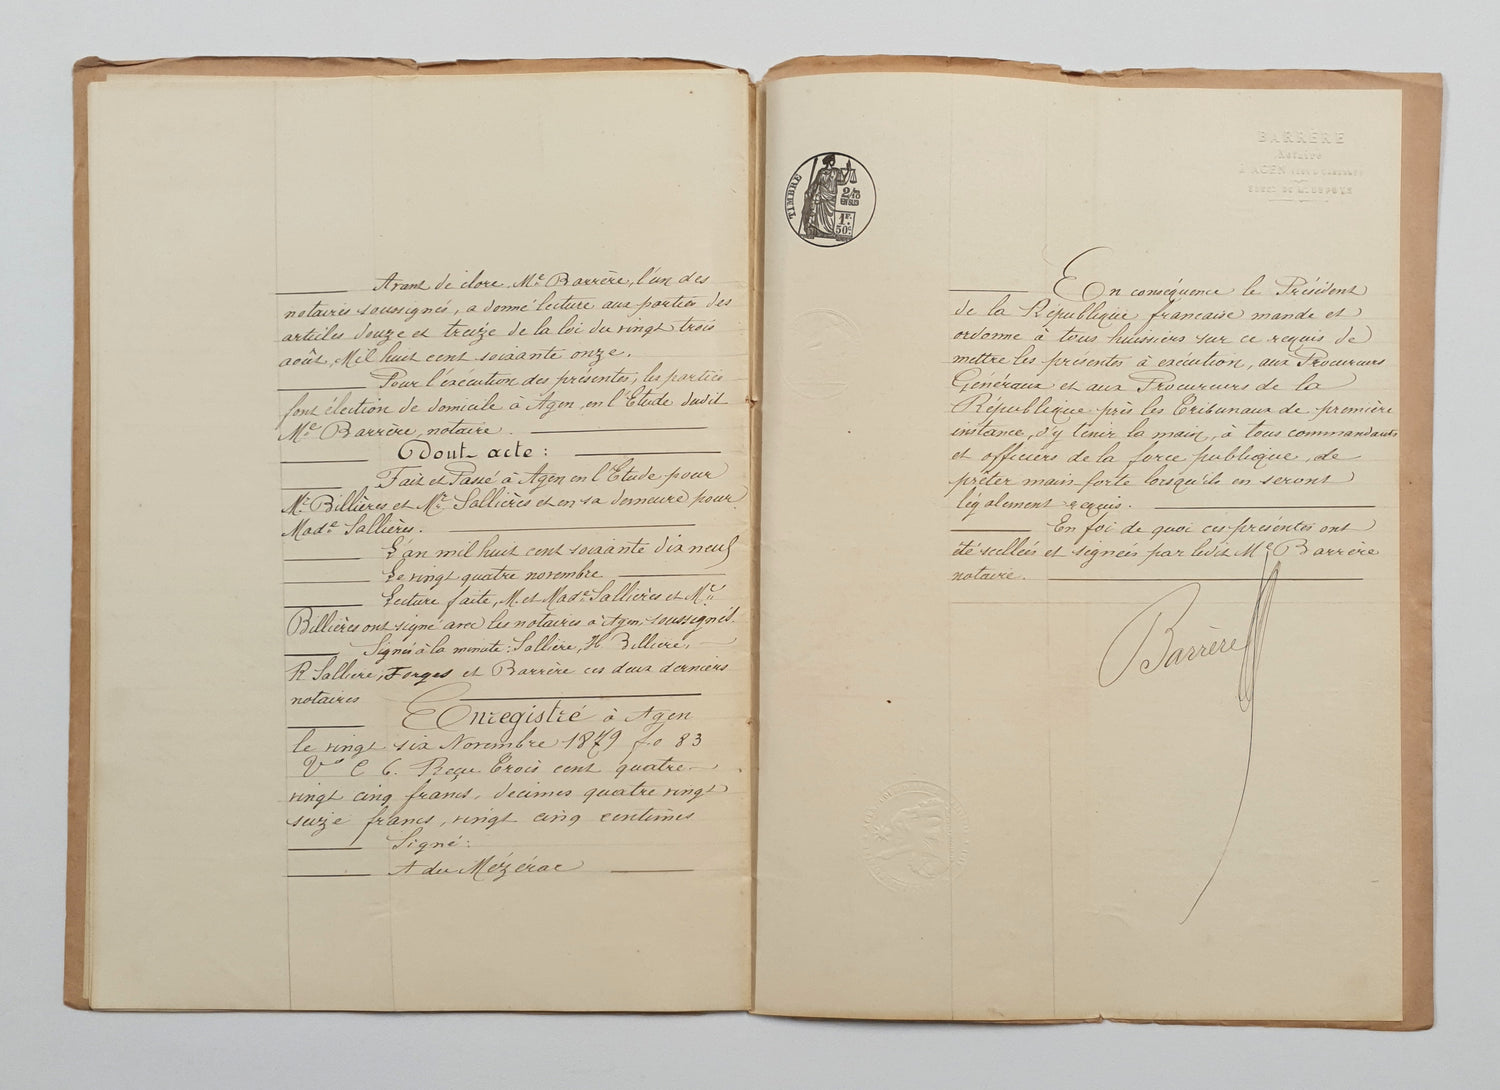 Avant de clore, Me Barrère, l'un des
notaires soussignés, a donné lecture aux parties des
articles douze et treize de la loi du vingt trois
août, Mil huit cent soixante onze.
Pour l'exécution des présentes, les parties
font élection de domicile à Agen, en l'Etude dudit
Me Barrère, notaire.
Dont acte:
Fait et Passé à Agen en l'Etude pour
Mr Billières et Mr Sallières et en sa demeure pour
Made Sallières.
L'an mil huit cent soixante dix neuf
Le vingt quatre novembre
Lecture faite, M. et Made Sallières et Mr
Billières ont signé avec les notaires à Agen, soussignés.
Signés à la minute: Sallière, H. Billiere,
R Salliere, Forges et Barrère ces deux derniers
notaires
Enregistré à Agen
le vingt six Novembre 1879 fo 83
Vo C 6. Reçu Trois cent quatre
vingt cinq francs, décimes quatre vingt
seize francs, vingt cinq centimes
Signé:
A du Mézérac
TIMBRE
2/10
EN SUS
1F.
50c
BARRÈRE
Notaire
À AGEN
SUCCr DE Me
En conséquence le Président
de la République française mande et
ordonne à tous huissiers sur ce requis de
mettre les présentes à exécution, aux Procureurs
Généraux et aux Procureurs de la
République près les Tribunaux de première
instance, d'y tenir la main, à tous commandants
et officiers de la force publique, de
prêter main forte lorsqu'ils en seront
légalement requis.
En foi de quoi ces présentes ont
été scellées et signées par ledit Me Barrère
notaire.
Barrère